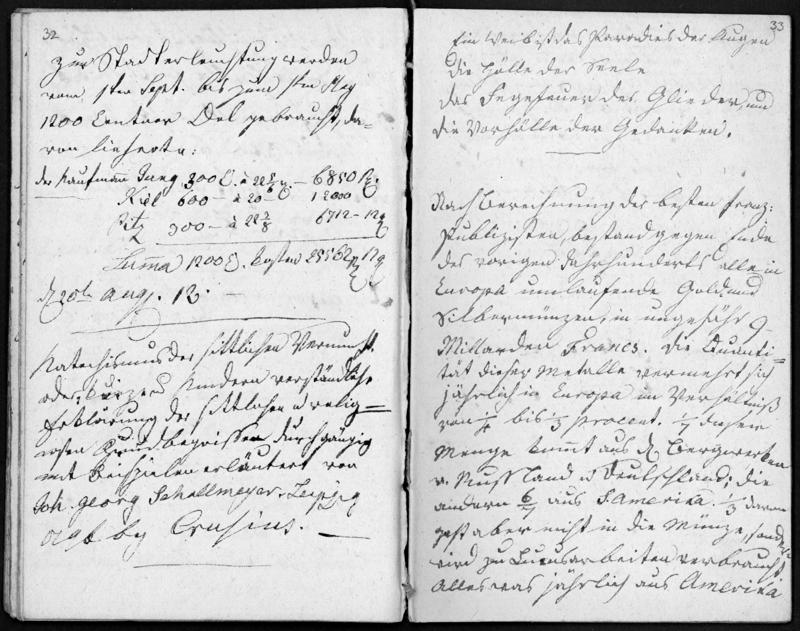 32
Zur Stadterleuchtung werden
vom 1ten Sept. bis zum 1ten May
1200 Centner Oel gebraucht, da-
von lieferte:
der Kaufmann Jung 300 à 22 — 6850
Kiel 600 à 20 — 12000
300 — à 22 6712 — 12
Suma 1200 kosten 25562 12
d 20t Aug. 12.
Katechismus der sittlichen Vernunft
oder, kurze Kindern verständliche
Erklärung der sittlichen u relig—
iosen Grundbegriffen durchgängig
mit Beispielen erläutert von
Joh. Georg Schollmeyer. Leipzig
by Crusius. —
33
Ein Weib ist das Paradies der Augen
die Hölle der Seele
das Fegefeuer des Glieder, und
die Vorhölle der Gedanken.
Nach Berechnung der besten franz:
Publizisten, bestand gegen Ende
des vorigen Jahrhunderts alle in
Europa umlaufende Gold und
Silbermünzen, in ungefähr 9
Millarden Francs. Die Quanti-
tät dieser Metalle vermehrt sich
jährlich in Europa im Verhältniß
von bis Procent. dieser
Menge kommt aus d Bergwerken
v. Russland u Deutschland; die
andern 6/7 aus S. Amerika. 1/3 davon
geht aber nicht in die Münze, sond
wird zu Luxusarbeiten verbraucht.
Alles was jährlich aus Amerika